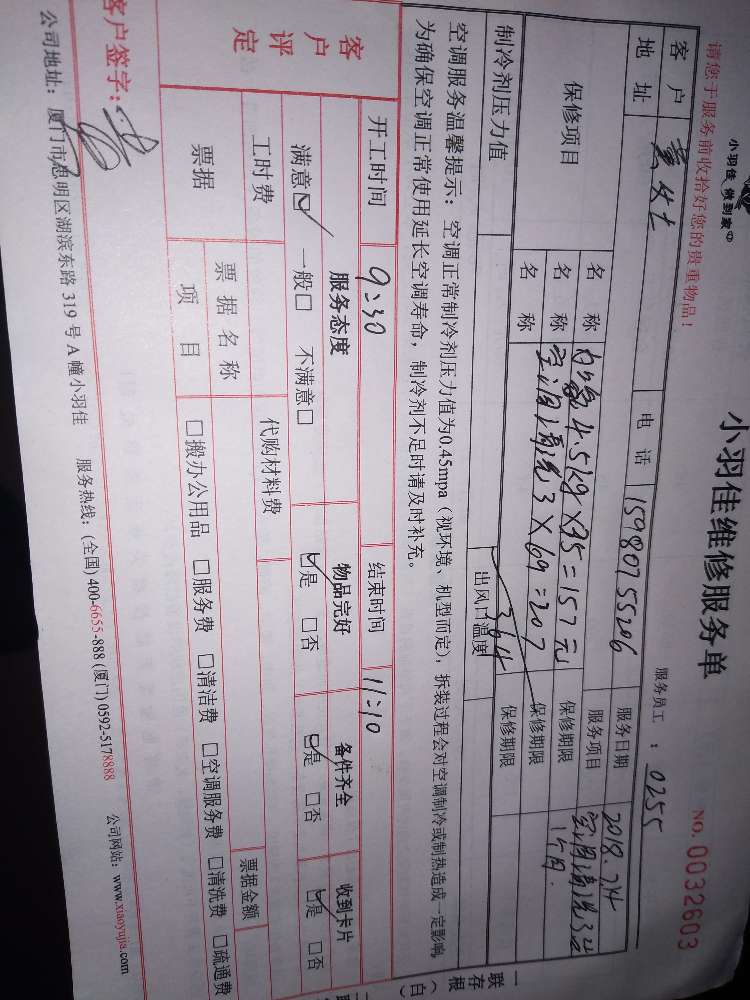 小羽佳 做到家
小羽佳维修服务单
NO. 0032603
请您于服务前收拾好您的贵重物品！
服务员工：0255
客户 黄女士 电话 15980755206 服务日期 2018.7.14
地址 服务项目 空调清洗3台
保修项目 名称 加氟4.5kg×35=157元 保修期限 1个月.
名称 空调清洗3×69=207 保修期限
名称 364 保修期限
制冷剂压力值 出风口温度
空调服务温馨提示：空调正常制冷剂压力值为0.45mpa（视环境、机型而定），拆装过程会对空调制冷或制热造成一定影响，
为确保空调正常使用延长空调寿命，制冷剂不足时请及时补充。
开工时间 9:30 结束时间 11:10
客户评定 服务态度 物品完好 备件齐全 收到卡片
满意☑ 一般□ 不满意□ ☑是 □否 ☑是 □否 ☑是 □否
工时费 代购材料费
票据 票据名称 票据金额
项目 □搬办公用品 □服务费 □清洁费 □空调服务费 □清洗费 □疏通费
客户签字：
公司地址：厦门市思明区湖滨东路319号A幢小羽佳 服务热线：(全国) 400-6655-888 (厦门) 0592-5178888 公司网站：www.xiaoyujia.com
一联存根（白）